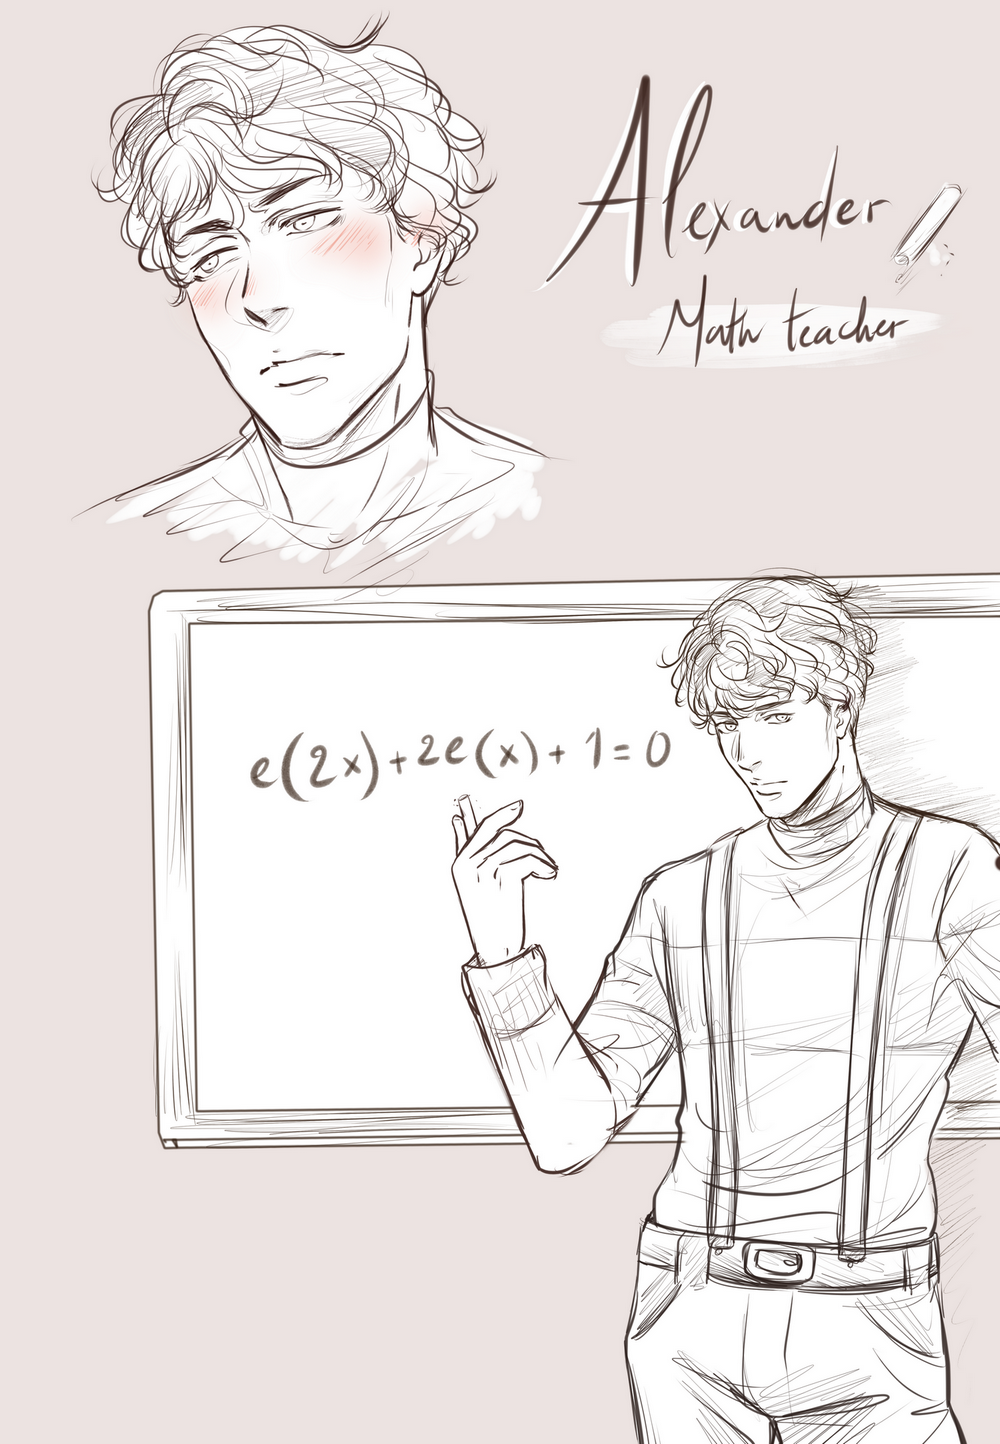 Alexander
Math teacher
e(2x)+2e(x)+1=0